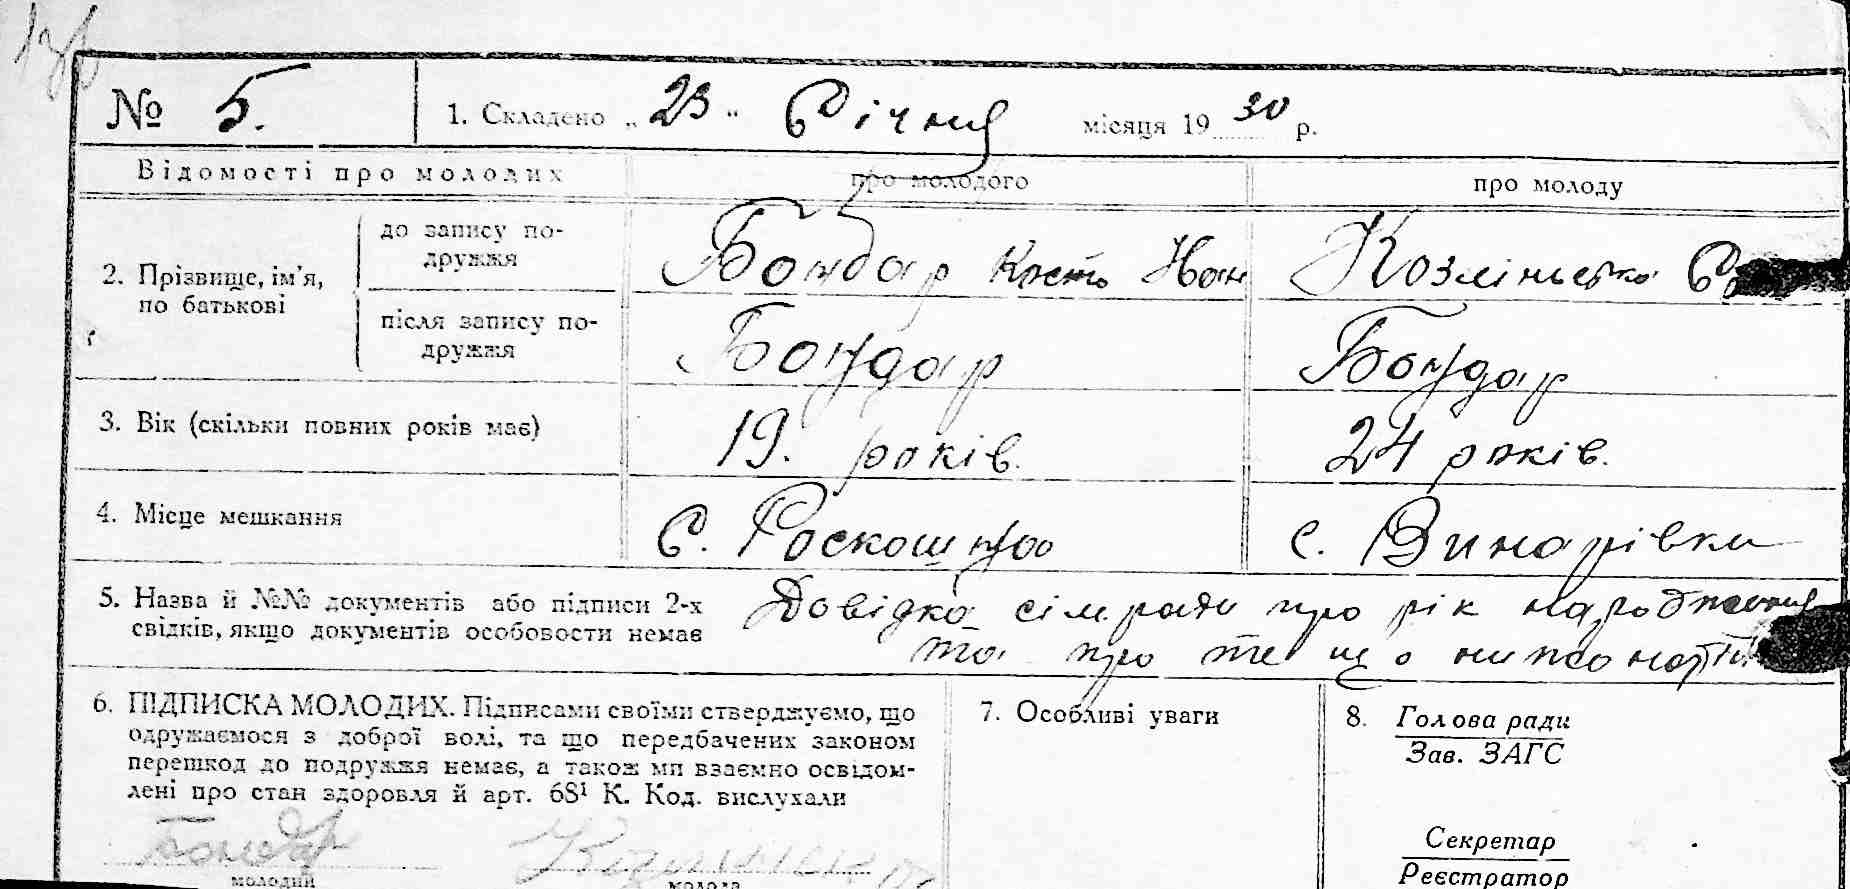 № 5.
1. Складено „ 23 " Січня місяця 19 30 р.
Відомості про молодих
про молодого
про молоду
2. Прізвище, ім'я, по батькові
до запису по-
дружжя
Бондар Кость Іван
Козлінська
після запису по-
дружжя
Бондар
Бондар
3. Вік (скільки повних років має)
19. років.
24 років.
4. Місце мешкання
С. Роскошна
с. Винарівка
5. Назва й №№ документів або підписи 2-х
свідків, якщо документів особовости немає
Довідка сім. ради про рік народження
та про те що
6. ПІДПИСКА МОЛОДИХ. Підписами своїми стверджуємо, що
одружаємося з доброї волі, та що передбачених законом
перешкод до подружжя немає, а також ми взаємно освідом-
лені про стан здоровля й арт. 68¹ К. Код. вислухали
Бондар
молодий
молода
7. Особливі уваги
8. Голова ради
Зав. ЗАГС
Секретар
Реєстратор